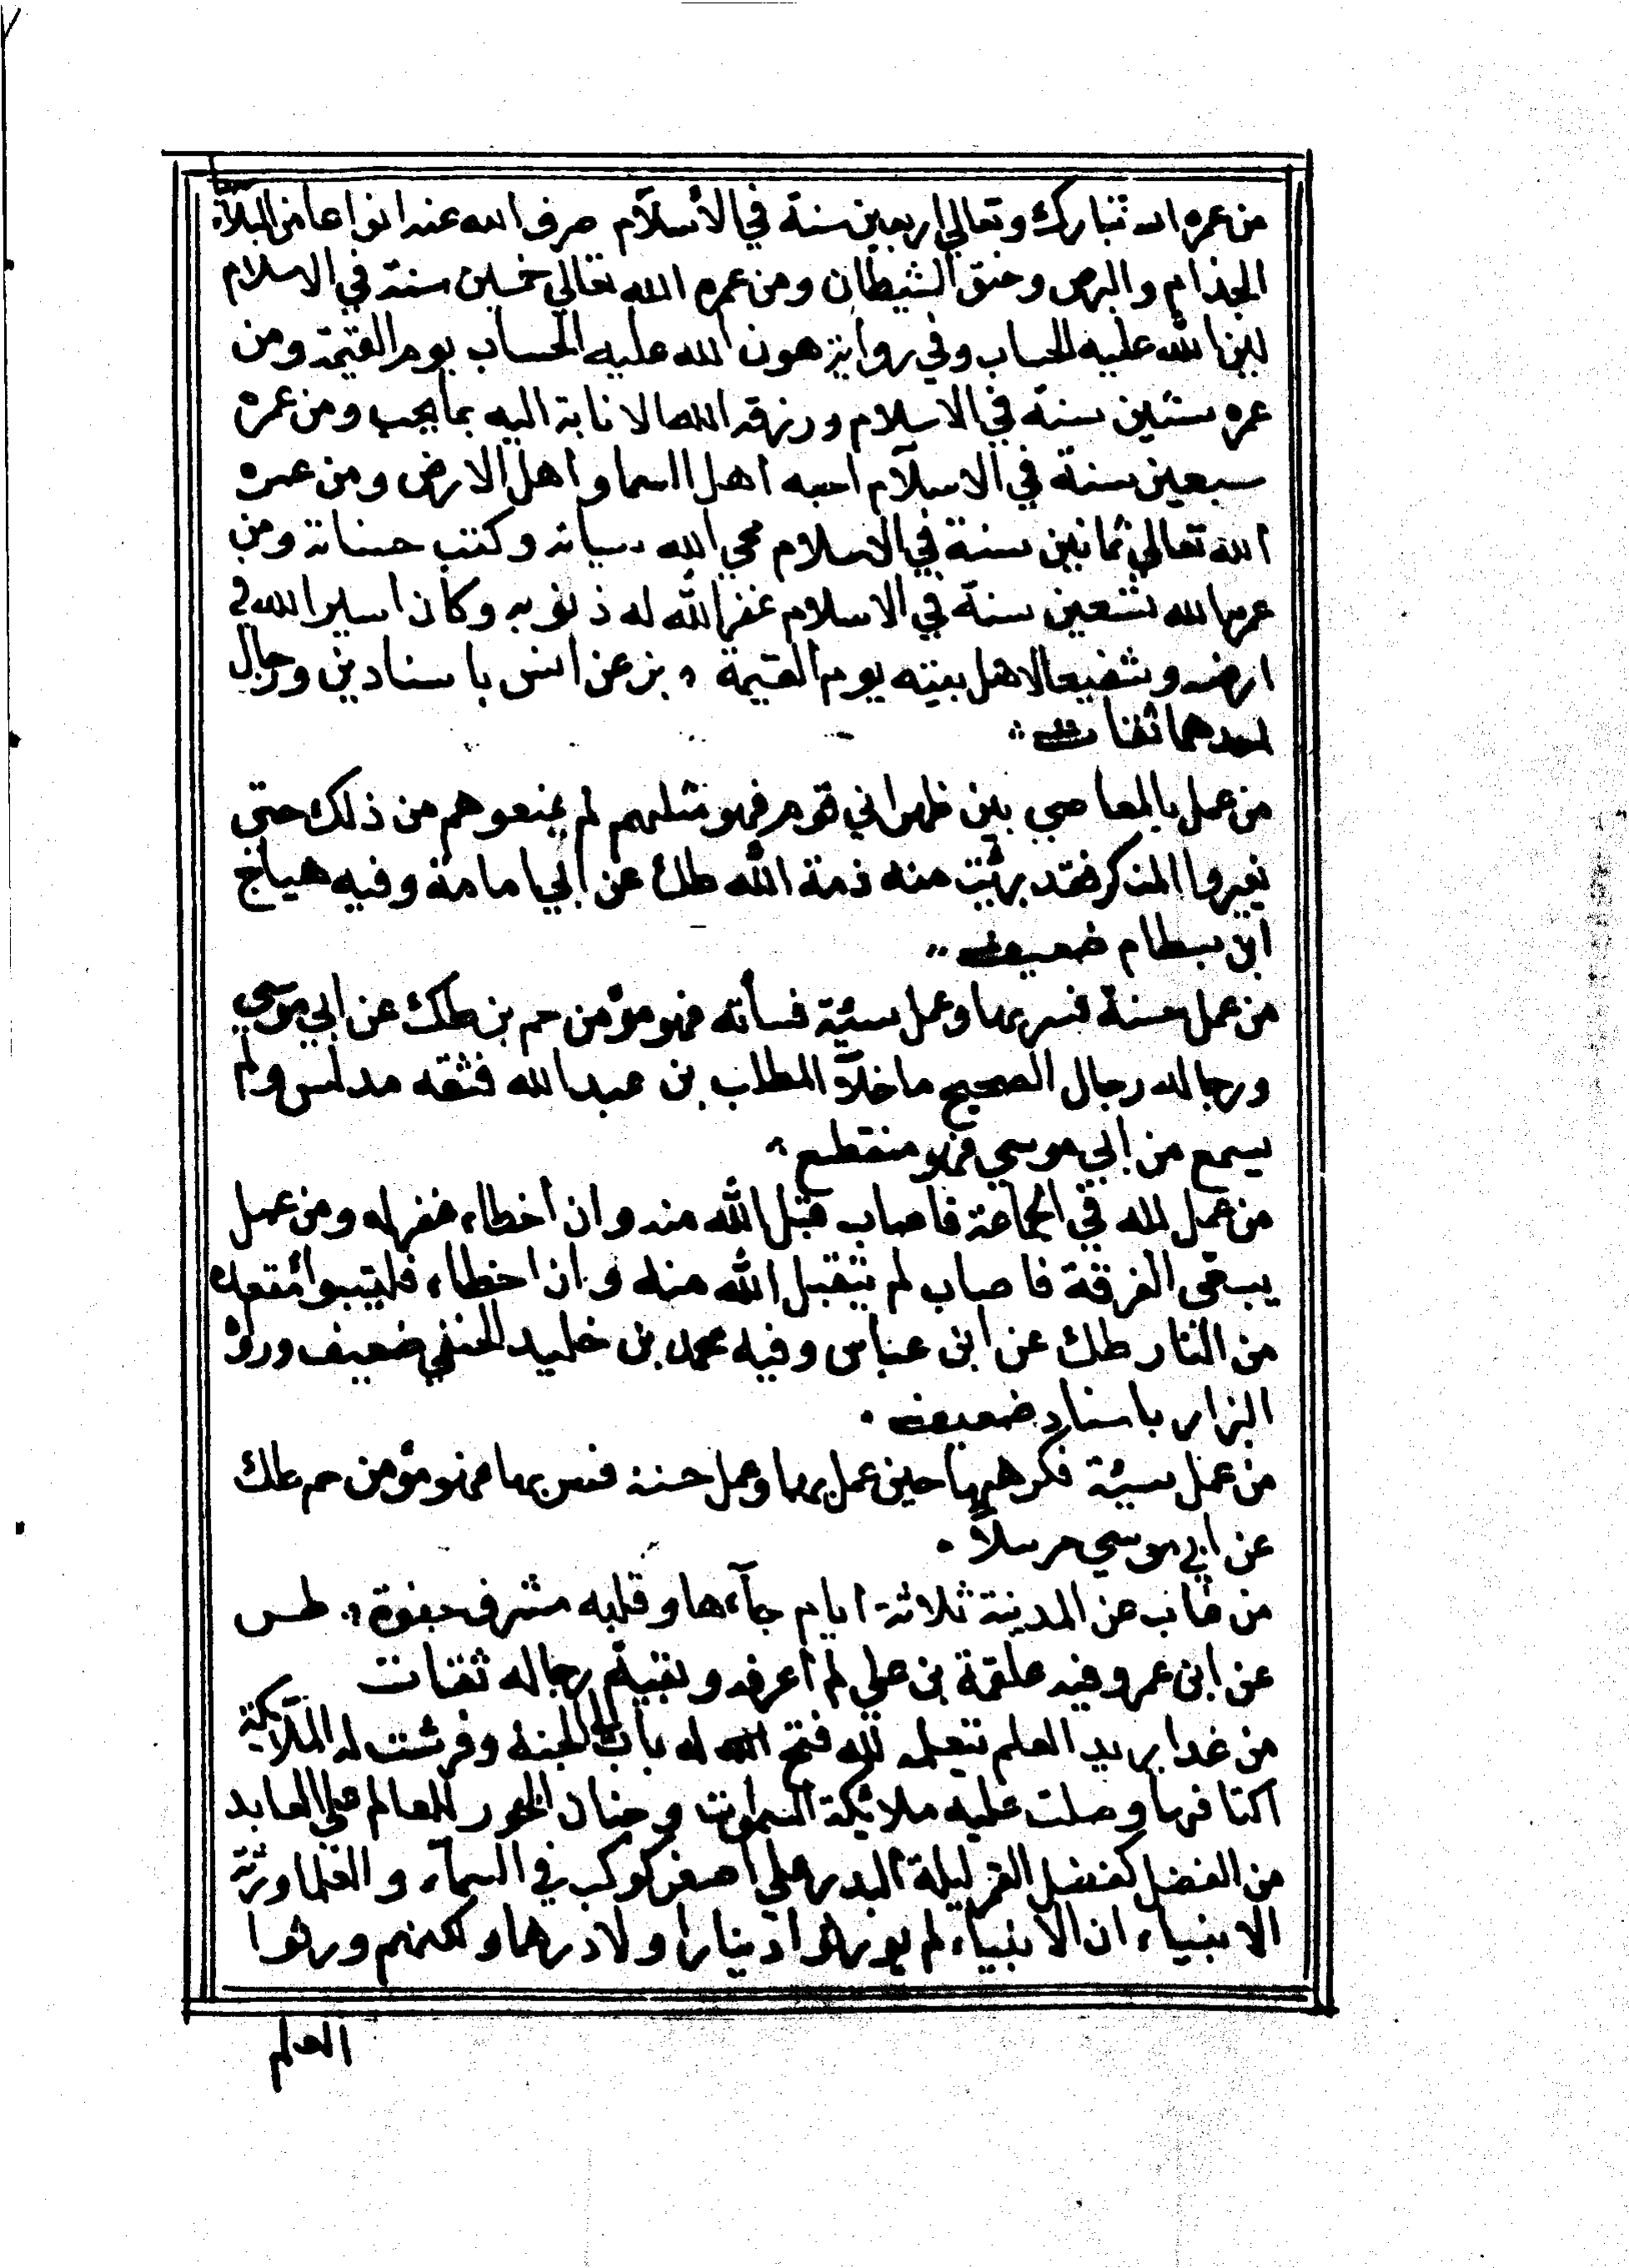 من عمره الله تبارك وتعالى اربعين سنة في الأسلام صرف الله عنه انواعا من البلآء
الجذام والبرص وخنق الشيطان ومن عمره الله تعالي خمسين سنة في الاسلام
لين الله عليه الحساب وفي رواية هون الله عليه الحساب يوم القيمة ومن
عمره ستين سنة في الاسلام ورزقه الله الانابة اليه بما يحب ومن عمره
سبعين سنة في الاسلآم احبه اهل السما واهل الارض ومن عمره
الله تعالي ثمانين سنة في الاسلام محي الله سياته وكتب حسناته ومن
عمره الله تسعين سنة في الاسلام غفر الله له ذنوبه وكان اسير الله في
ارضه وشفيعا لاهل بيته يوم القيمة بز عن انس باسنادين ورجال
احدهما ثقات
من عمل بالمعاصي بين ظهراني قوم فهو مثلهم لم يمنعوهم من ذلك حتي
يغيروا المنكر فقد برئت منه ذمة الله طك عن ابي امامة وفيه هياج
ابن بسطام ضعيف
من عمل حسنة فسر بها وعمل سيئة فسأته فهو مؤمن حم بن طك عن ابي موسي
ورجاله رجال الصحيح ما خلآ المطلب بن عبد الله فثقه مدلس ولم
يسمع من ابي موسي فهو منقطع
من عمل لله في الجماعة فاصاب قبل الله منه وان اخطاء غفر له ومن عمل
يبتغي الفرقة فاصاب لم يتقبل الله منه وان اخطاء فليتبوا مقعده
من النار طك عن ابن عباس وفيه محمد بن خليد الحنفي ضعيف ورواه
البزار باسناد ضعيف
من عمل سيئة فكرهها حين عمل بها وعمل حسنة فسر بها فهو مؤمن حم طك
عن ابي موسي مرسلاً
من غاب عن المدينة ثلاثة ايام جآءها وقلبه مشرف جفوة طس
عن ابن عمر وفيه علقمة بن علي لم اعرفه وبقية رجاله ثقات
من غدا يريد العلم يتعلمه لله فتح الله له باب الجنة وفرشت له الملآيكة
اكنافها وصلت عليه ملائكة السموات وحيتان البحور للعالم علي العابد
من الفضل كفضل القمر ليلة البدر علي اصغر كوكب في السمآء والعلما ورثة
الانبياء ان الانبياء لم يورثوا دينارا ولا درهما ولكنهم ورثوا
العلم